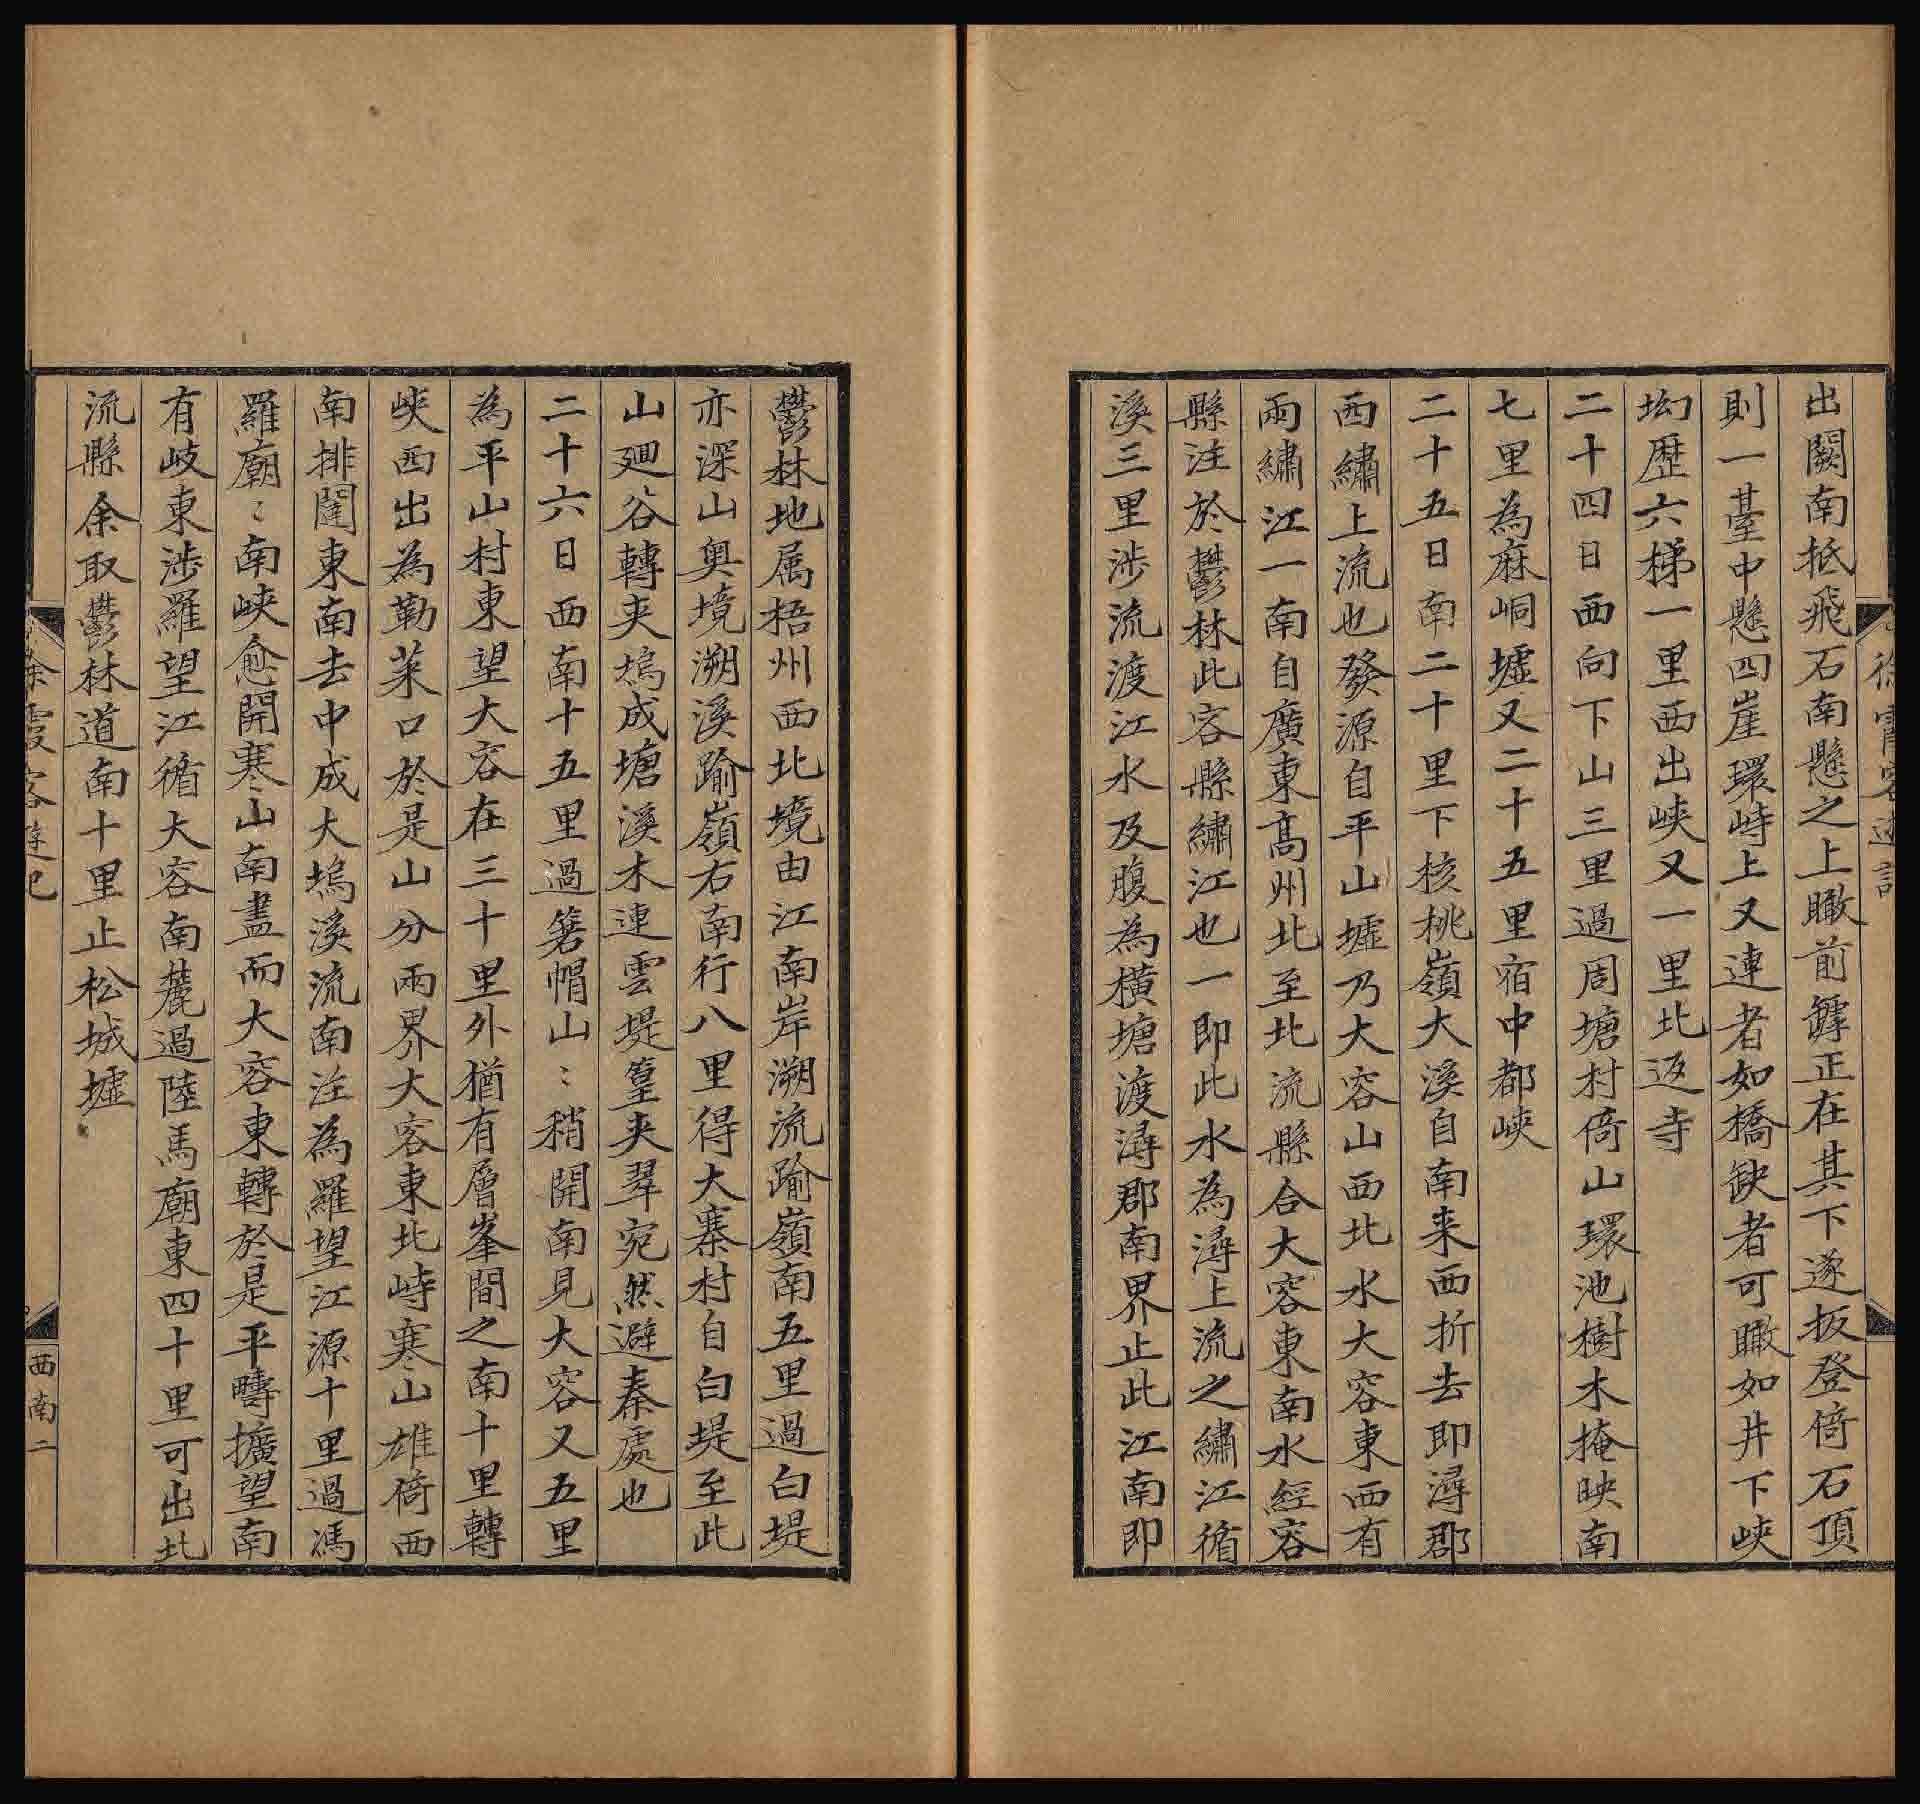 徐霞客遊記
出闕南抵飛石南懸之上瞰前罅正在其下遂扳登倚石頂
則一臺中懸四崖環峙上又連者如橋缺者可瞰如井下峽
坳歷六梯一里西出峽又一里北返寺
二十四日西向下山三里過周塘村倚山環池樹木掩映南
七里為麻峒墟又二十五里宿中都峽
二十五日南二十里下核桃嶺大溪自南来西折去即潯郡
西繡上流也發源自平山墟乃大容山西北水大容東西有
兩繡江一南自廣東髙州北至北流縣合大容東南水經容
縣注於鬱林此容縣繡江也一即此水為潯上流之繡江循
溪三里涉流渡江水及腹為橫塘渡潯郡南界止此江南即
鬱林地属梧州西北境由江南岸溯流踰嶺南五里過白堤
亦深山奥境溯溪踰嶺右南行八里得大寨村自白堤至此
山廻谷轉夾塢成塘溪木連雲堤篁夾翠宛然避秦處也
二十六日西南十五里過箬帽山〻稍開南見大容又五里
為平山村東望大容在三十里外猶有層峯間之南十里轉
峽西出為勒菜口於是山分兩界大容東北峙寒山雄倚西
南排闥東南去中成大塢溪流南注為羅望江源十里過馮
羅廟〻南峽愈開寒山南盡而大容東轉於是平疇擴望南
有岐東涉羅望江循大容南麓過陸馬廟東四十里可出北
流縣余取鬱林道南十里止松城墟
徐霞客遊記
西南二